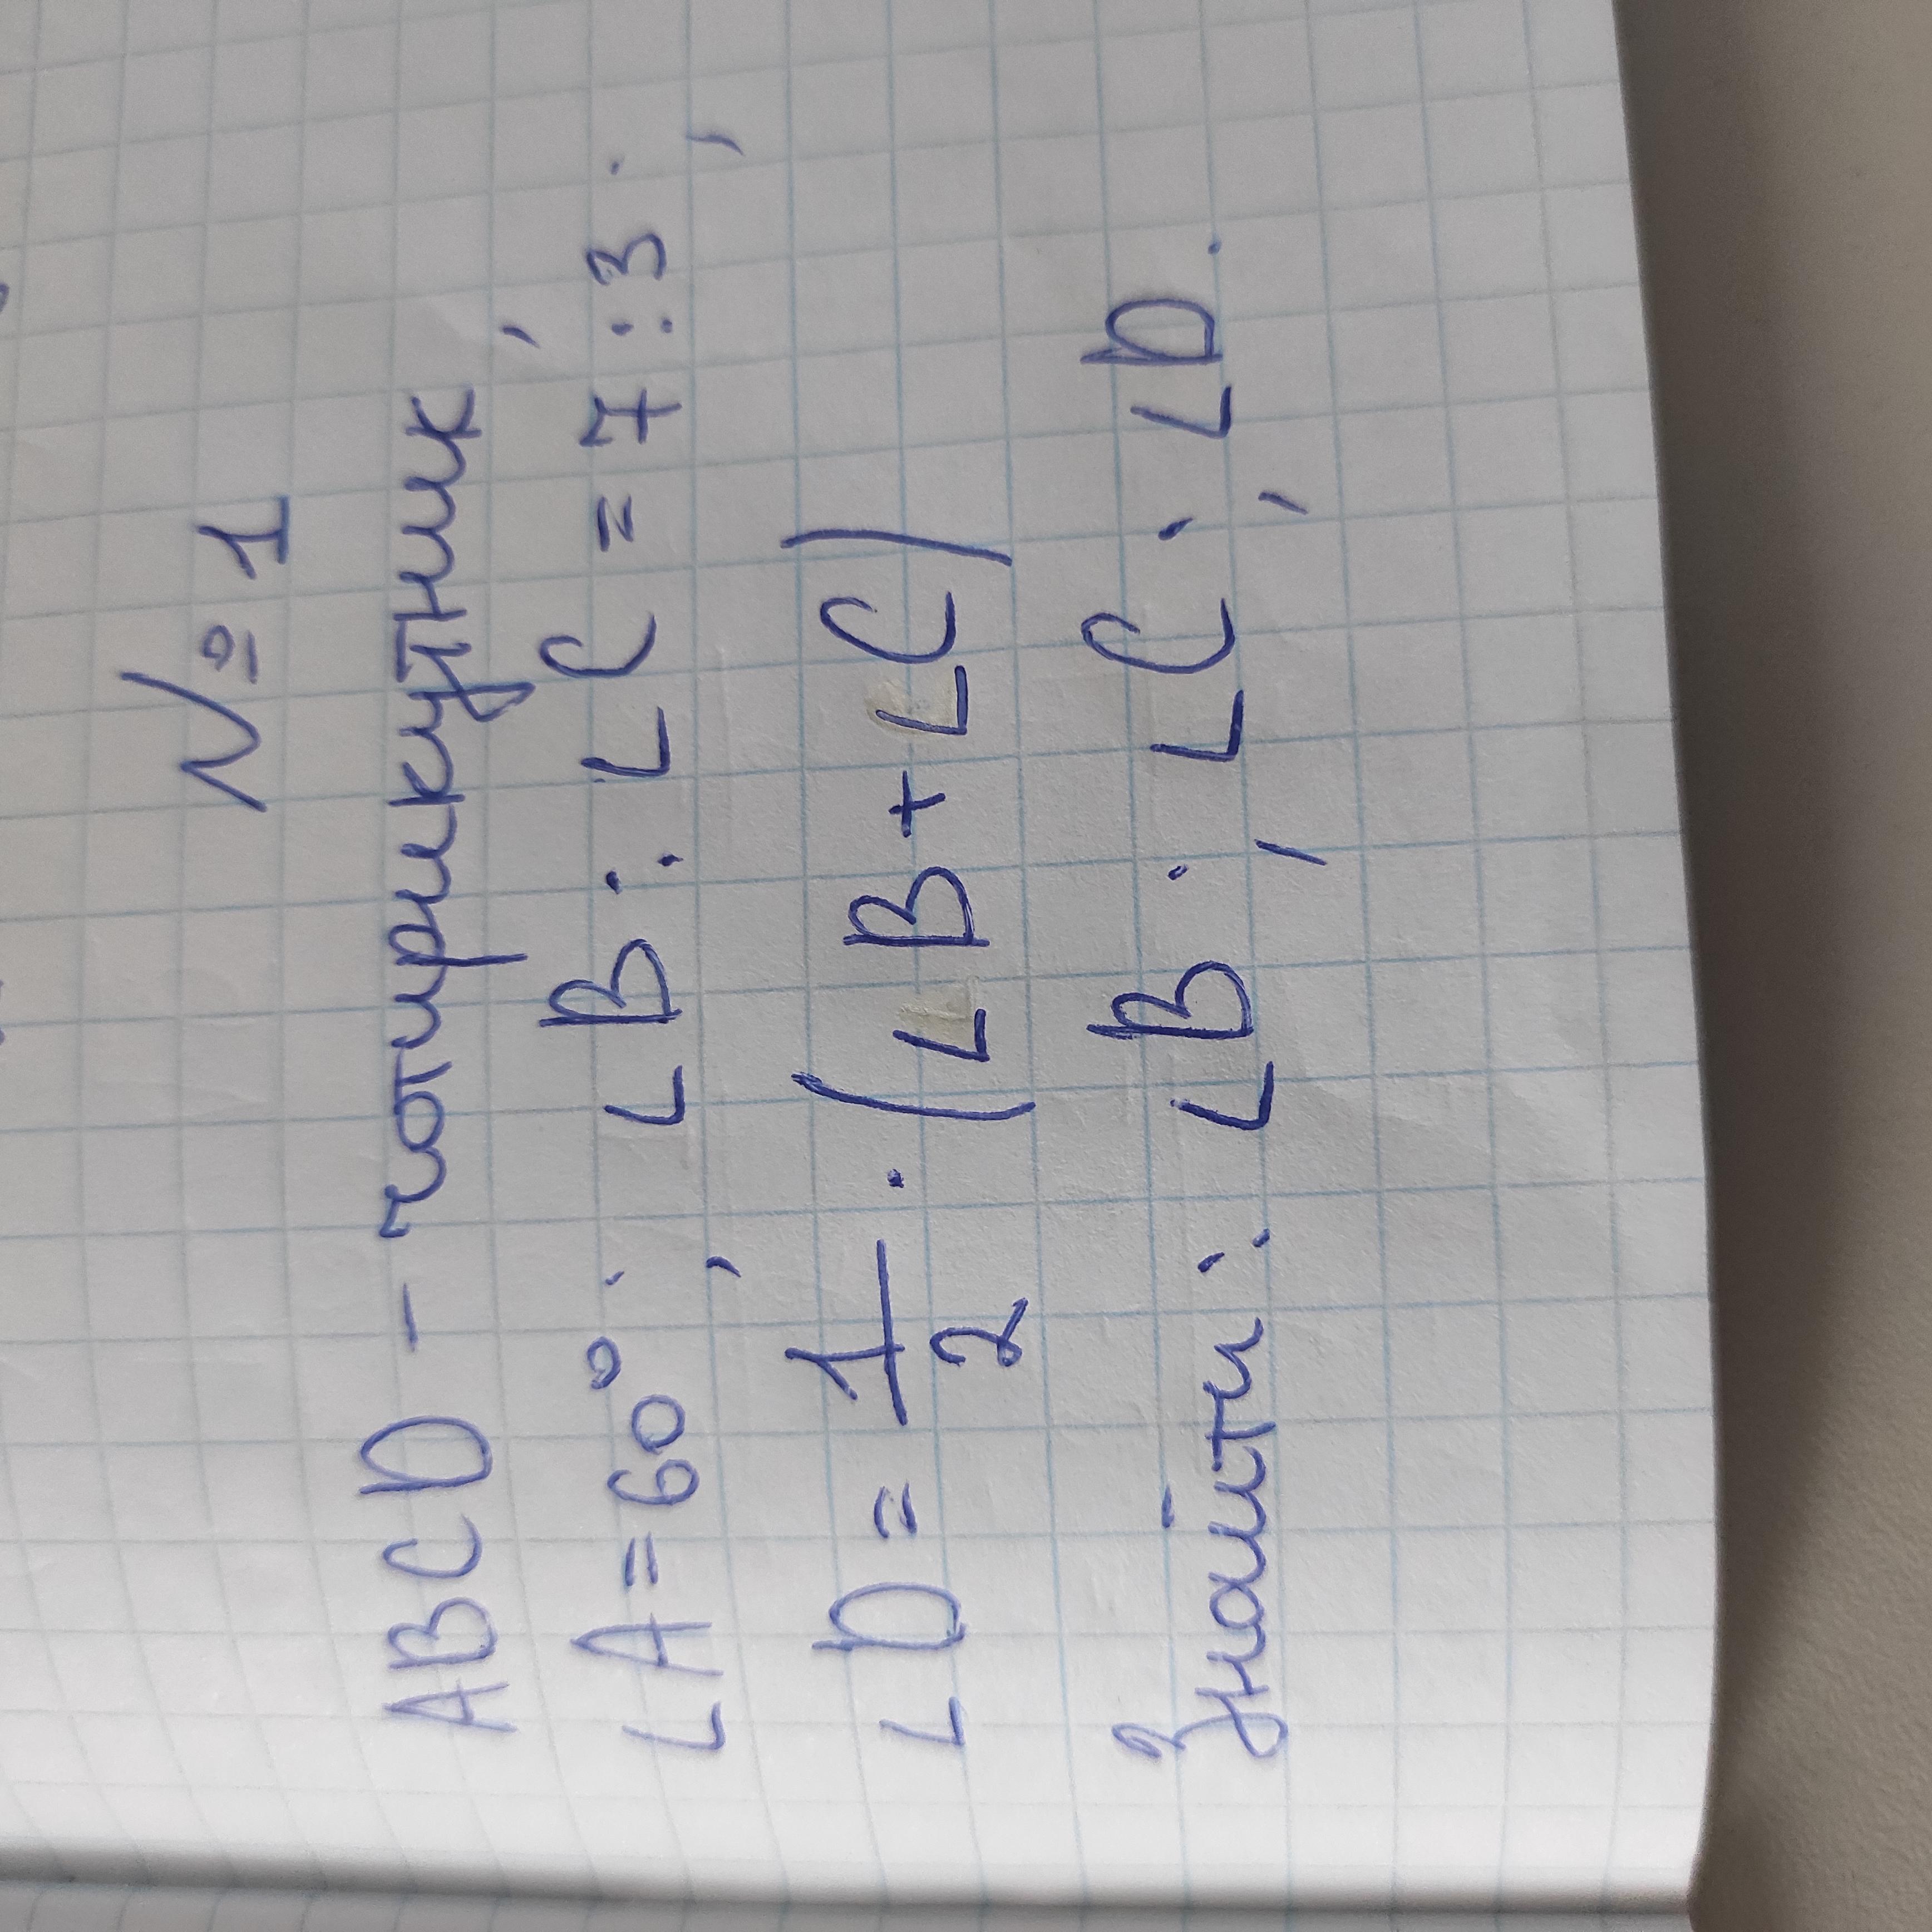 № 1
ABCD - чотирикутник,
∟A = 60°; ∟B : ∟C = 7 : 3;
∟D = 1/2 · (∟B + ∟C)
Знайти: ∟B; ∟C; ∟D.